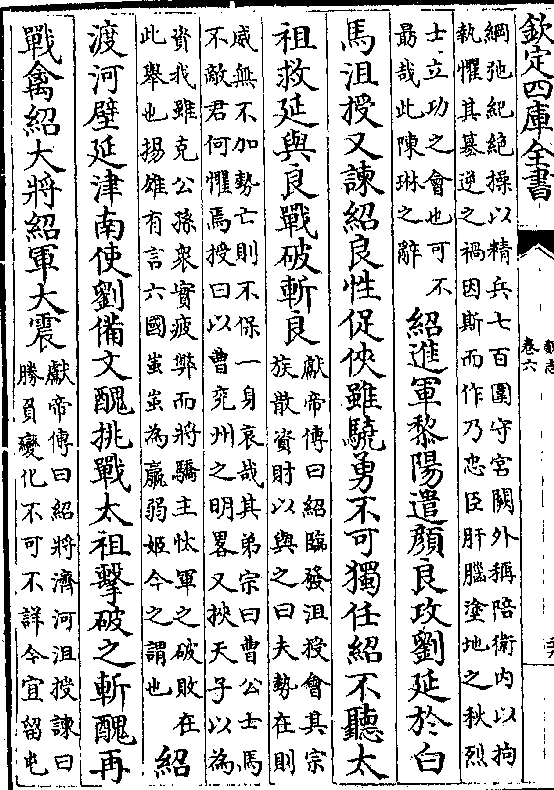 欽定四庫全書
卷六
綱弛紀絶操以精兵七百圍守宮闕外稱陪衛内以拘
執懼其簒逆之禍因斯而作乃忠臣肝腦塗地之秋烈
士立功之會也可不
朂哉此陳琳之辭
紹進軍黎陽遣顔良攻劉延於白
馬沮授又諫紹良性促俠雖驍勇不可獨任紹不聽太
祖救延與良戰破斬良
獻帝傳曰紹臨發沮授會其宗
族散資財以與之曰夫勢在則
威無不加勢亡則不保一身哀哉其弟宗曰曹公士馬
不敵君何懼焉授曰以曹兖州之明畧又挾天子以為
資我雖克公孫衆實疲弊而將驕主忲軍之破敗在
此舉也揚雄有言六國蚩蚩為嬴弱姬今之謂也
紹
渡河壁延津南使劉備文醜挑戰太祖擊破之斬醜再
戰禽紹大將紹軍大震
獻帝傳曰紹將濟河沮授諫曰
勝負變化不可不詳今宜留屯